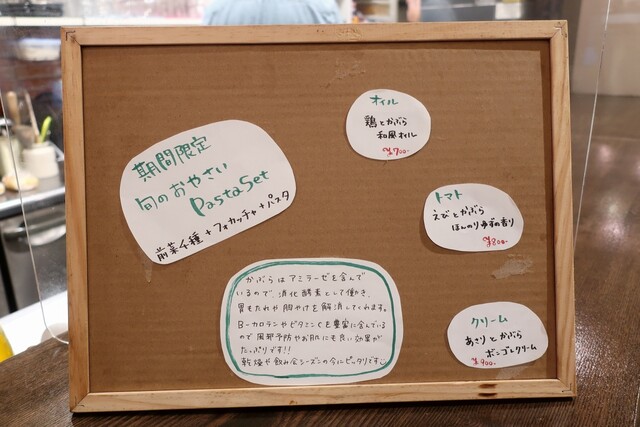 期間限定
旬のおやさい
PastaSet
前菜4種+フォカッチャ+パスタ
オイル
鶏とかぶら
和風オイル
¥700-
トマト
えびとかぶら
ほんのりゆずの香り
¥800-
かぶらはアミラーゼを含んで
いるので、消化酵素として働き、
胃もたれや胸やけを解消してくれます。
B-カロテンやビタミンCも豊富に含んでいる
ので風邪予防やお肌にも良い効果が
たっぷりです!!
乾燥や飲み会シーズンの今にピッタリです
クリーム
あさりとかぶら
ボンゴレクリーム
¥900-